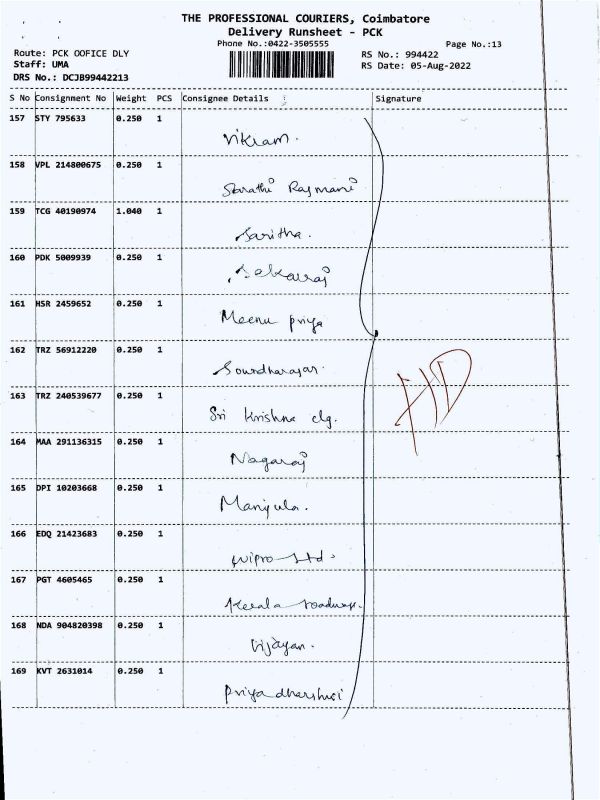 THE PROFESSIONAL COURIERS, Coimbatore
Delivery Runsheet - PCK
Phone No.:0422-3505555
Page No.:13
Route: PCK OOFICE DLY
RS No.: 994422
Staff: UMA
RS Date: 05-Aug-2022
DRS No.: DCJB99442213
S No Consignment No Weight PCS Consignee Details Signature
157 STY 795633 0.250 1
Vikram.
158 VPL 214800675 0.250 1
Sarathi Rajmani
159 TCG 40190974 1.040 1
Saritha.
160 PDK 5009939 0.250 1
Selvaraj
161 HSR 2459652 0.250 1
Meenu priya
162 TRZ 56912220 0.250 1
Soundharajan.
163 TRZ 240539677 0.250 1
Sri Krishna clg.
HD
164 MAA 291136315 0.250 1
Nagaraj
165 DPI 10203668 0.250 1
Manjula.
166 EDQ 21423683 0.250 1
Wipro Ltd.
167 PGT 4605465 0.250 1
Kerala roadways.
168 NDA 904820398 0.250 1
Vijayan.
169 KVT 2631014 0.250 1
Priyadharshini